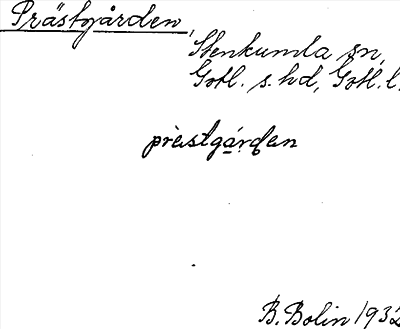 Prästgården,
Stenkumla sn,
Gotl. s. hd, Gotl. l.
prästgården
B. Bolin 1932